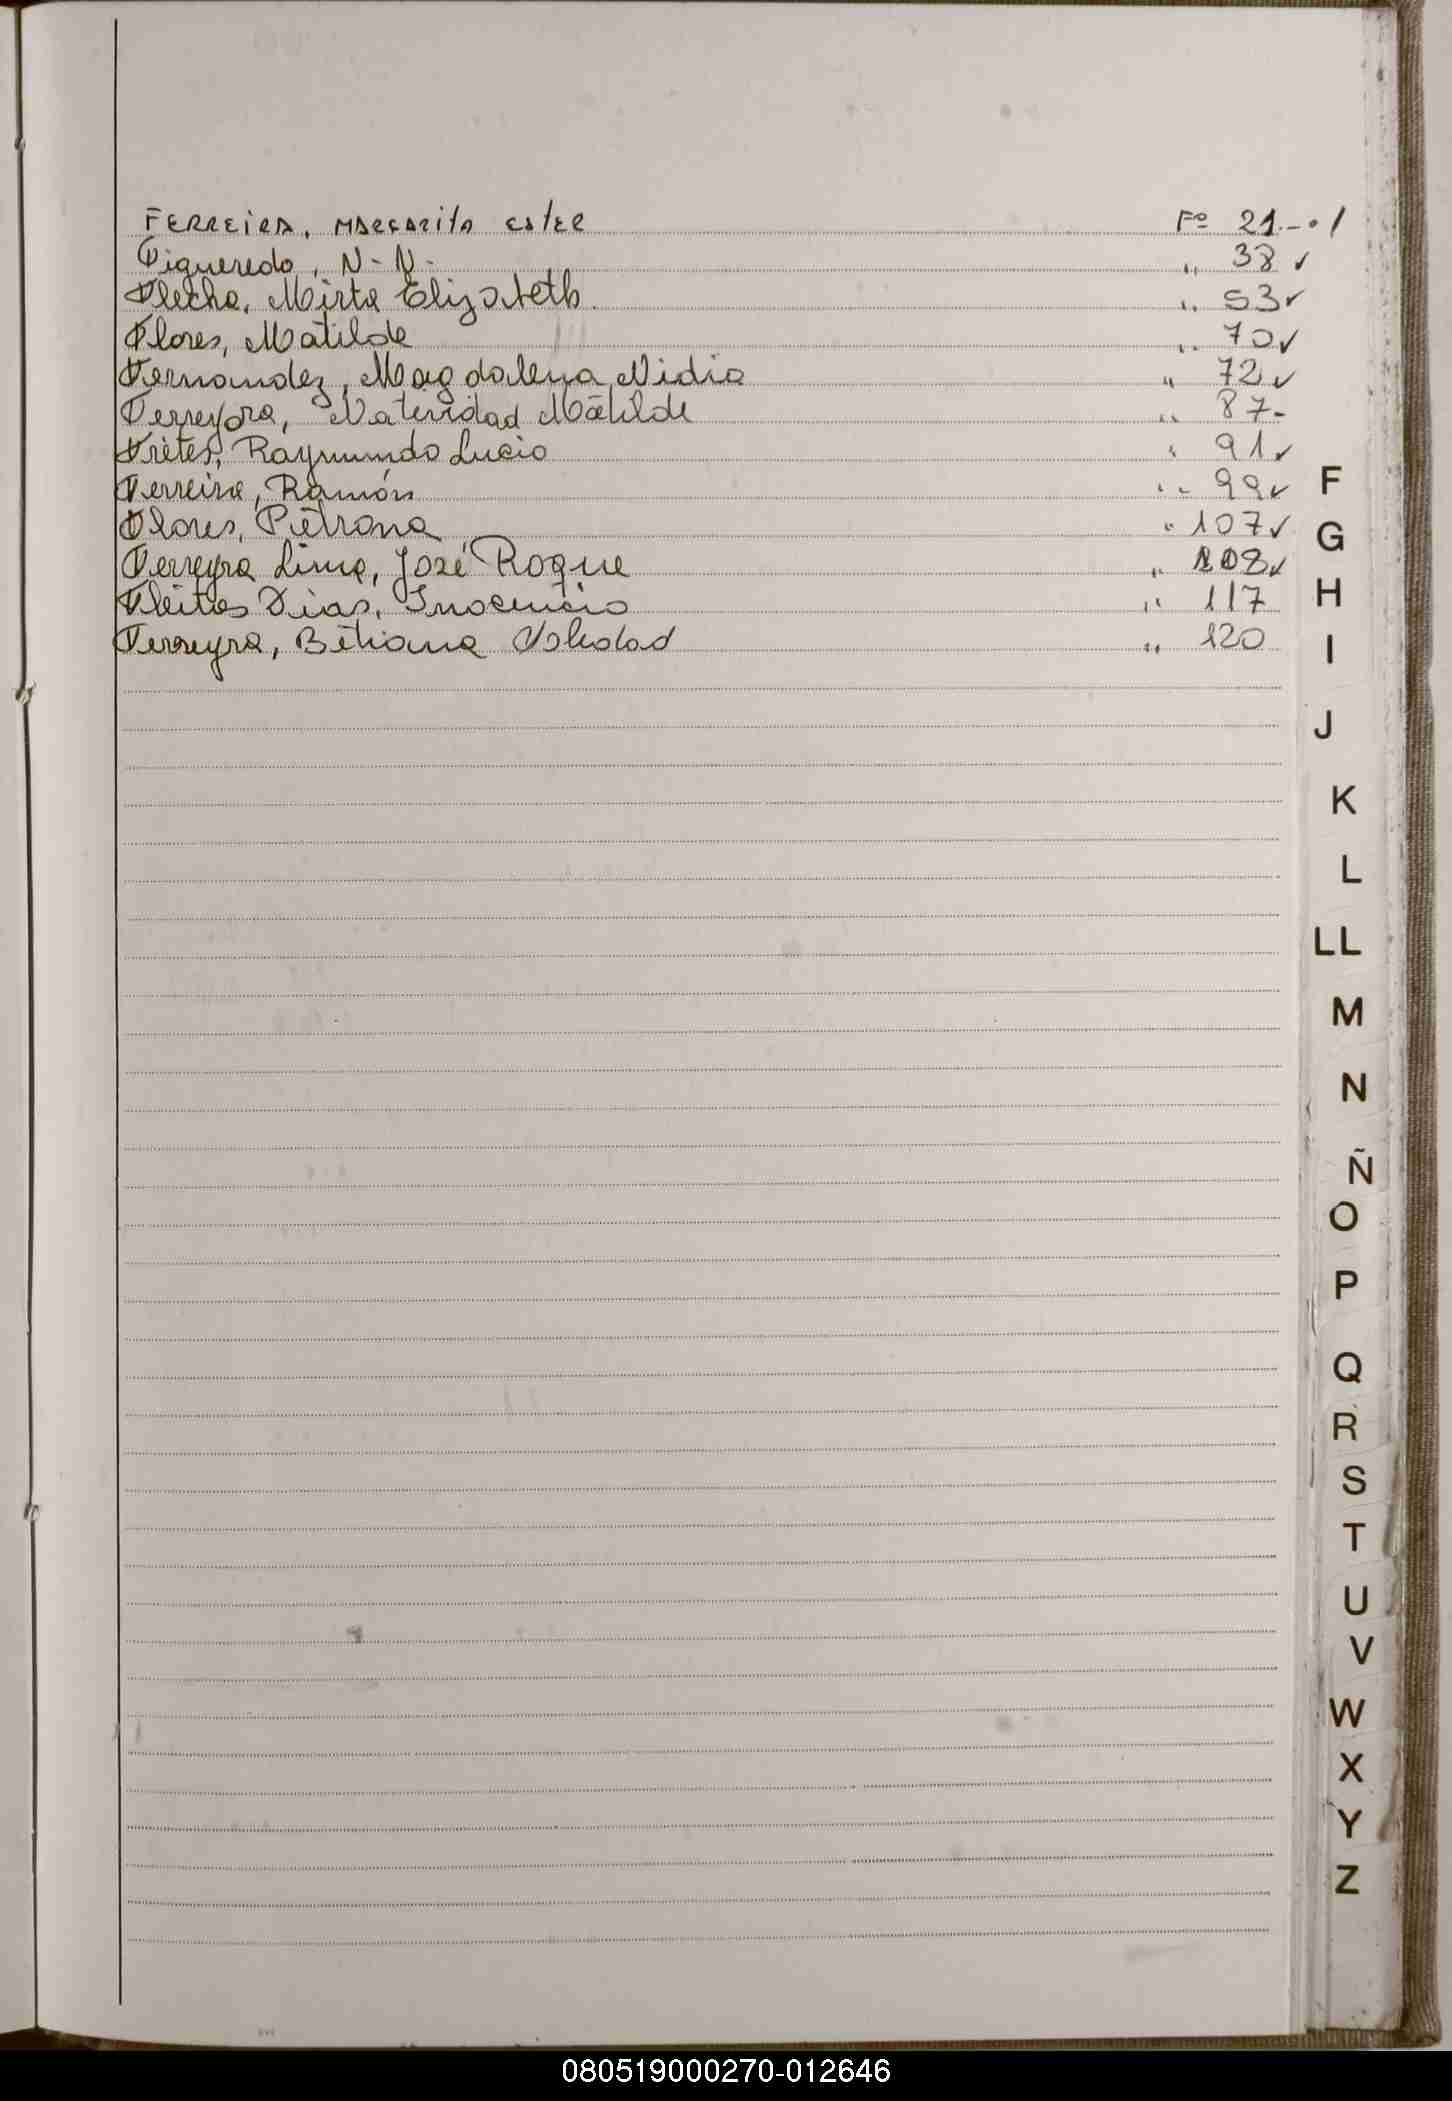 FERREIRA, MARGARITA ESTER Fº 21.-
Figueredo, N-N- " 38 ✓
Flecha, Mirta Elizabeth " 53 ✓
Flores, Matilde " 70 ✓
Fernandez, Magdalena Nidia " 72 ✓
Ferreyra, Natividad Matilde " 87-
Fretes, Raymundo Lucio " 91 ✓
Ferreira, Ramón " 99 ✓
Flores, Petrona " 107 ✓
Ferreyra Lima, José Roque " 108 ✓
Fleitas Dias, Inocencio " 117
Ferreyra, Betiana Soledad " 120
F
G
H
I
J
K
L
LL
M
N
Ñ
O
P
Q
R
S
T
U
V
W
X
Y
Z
080519000270-012646